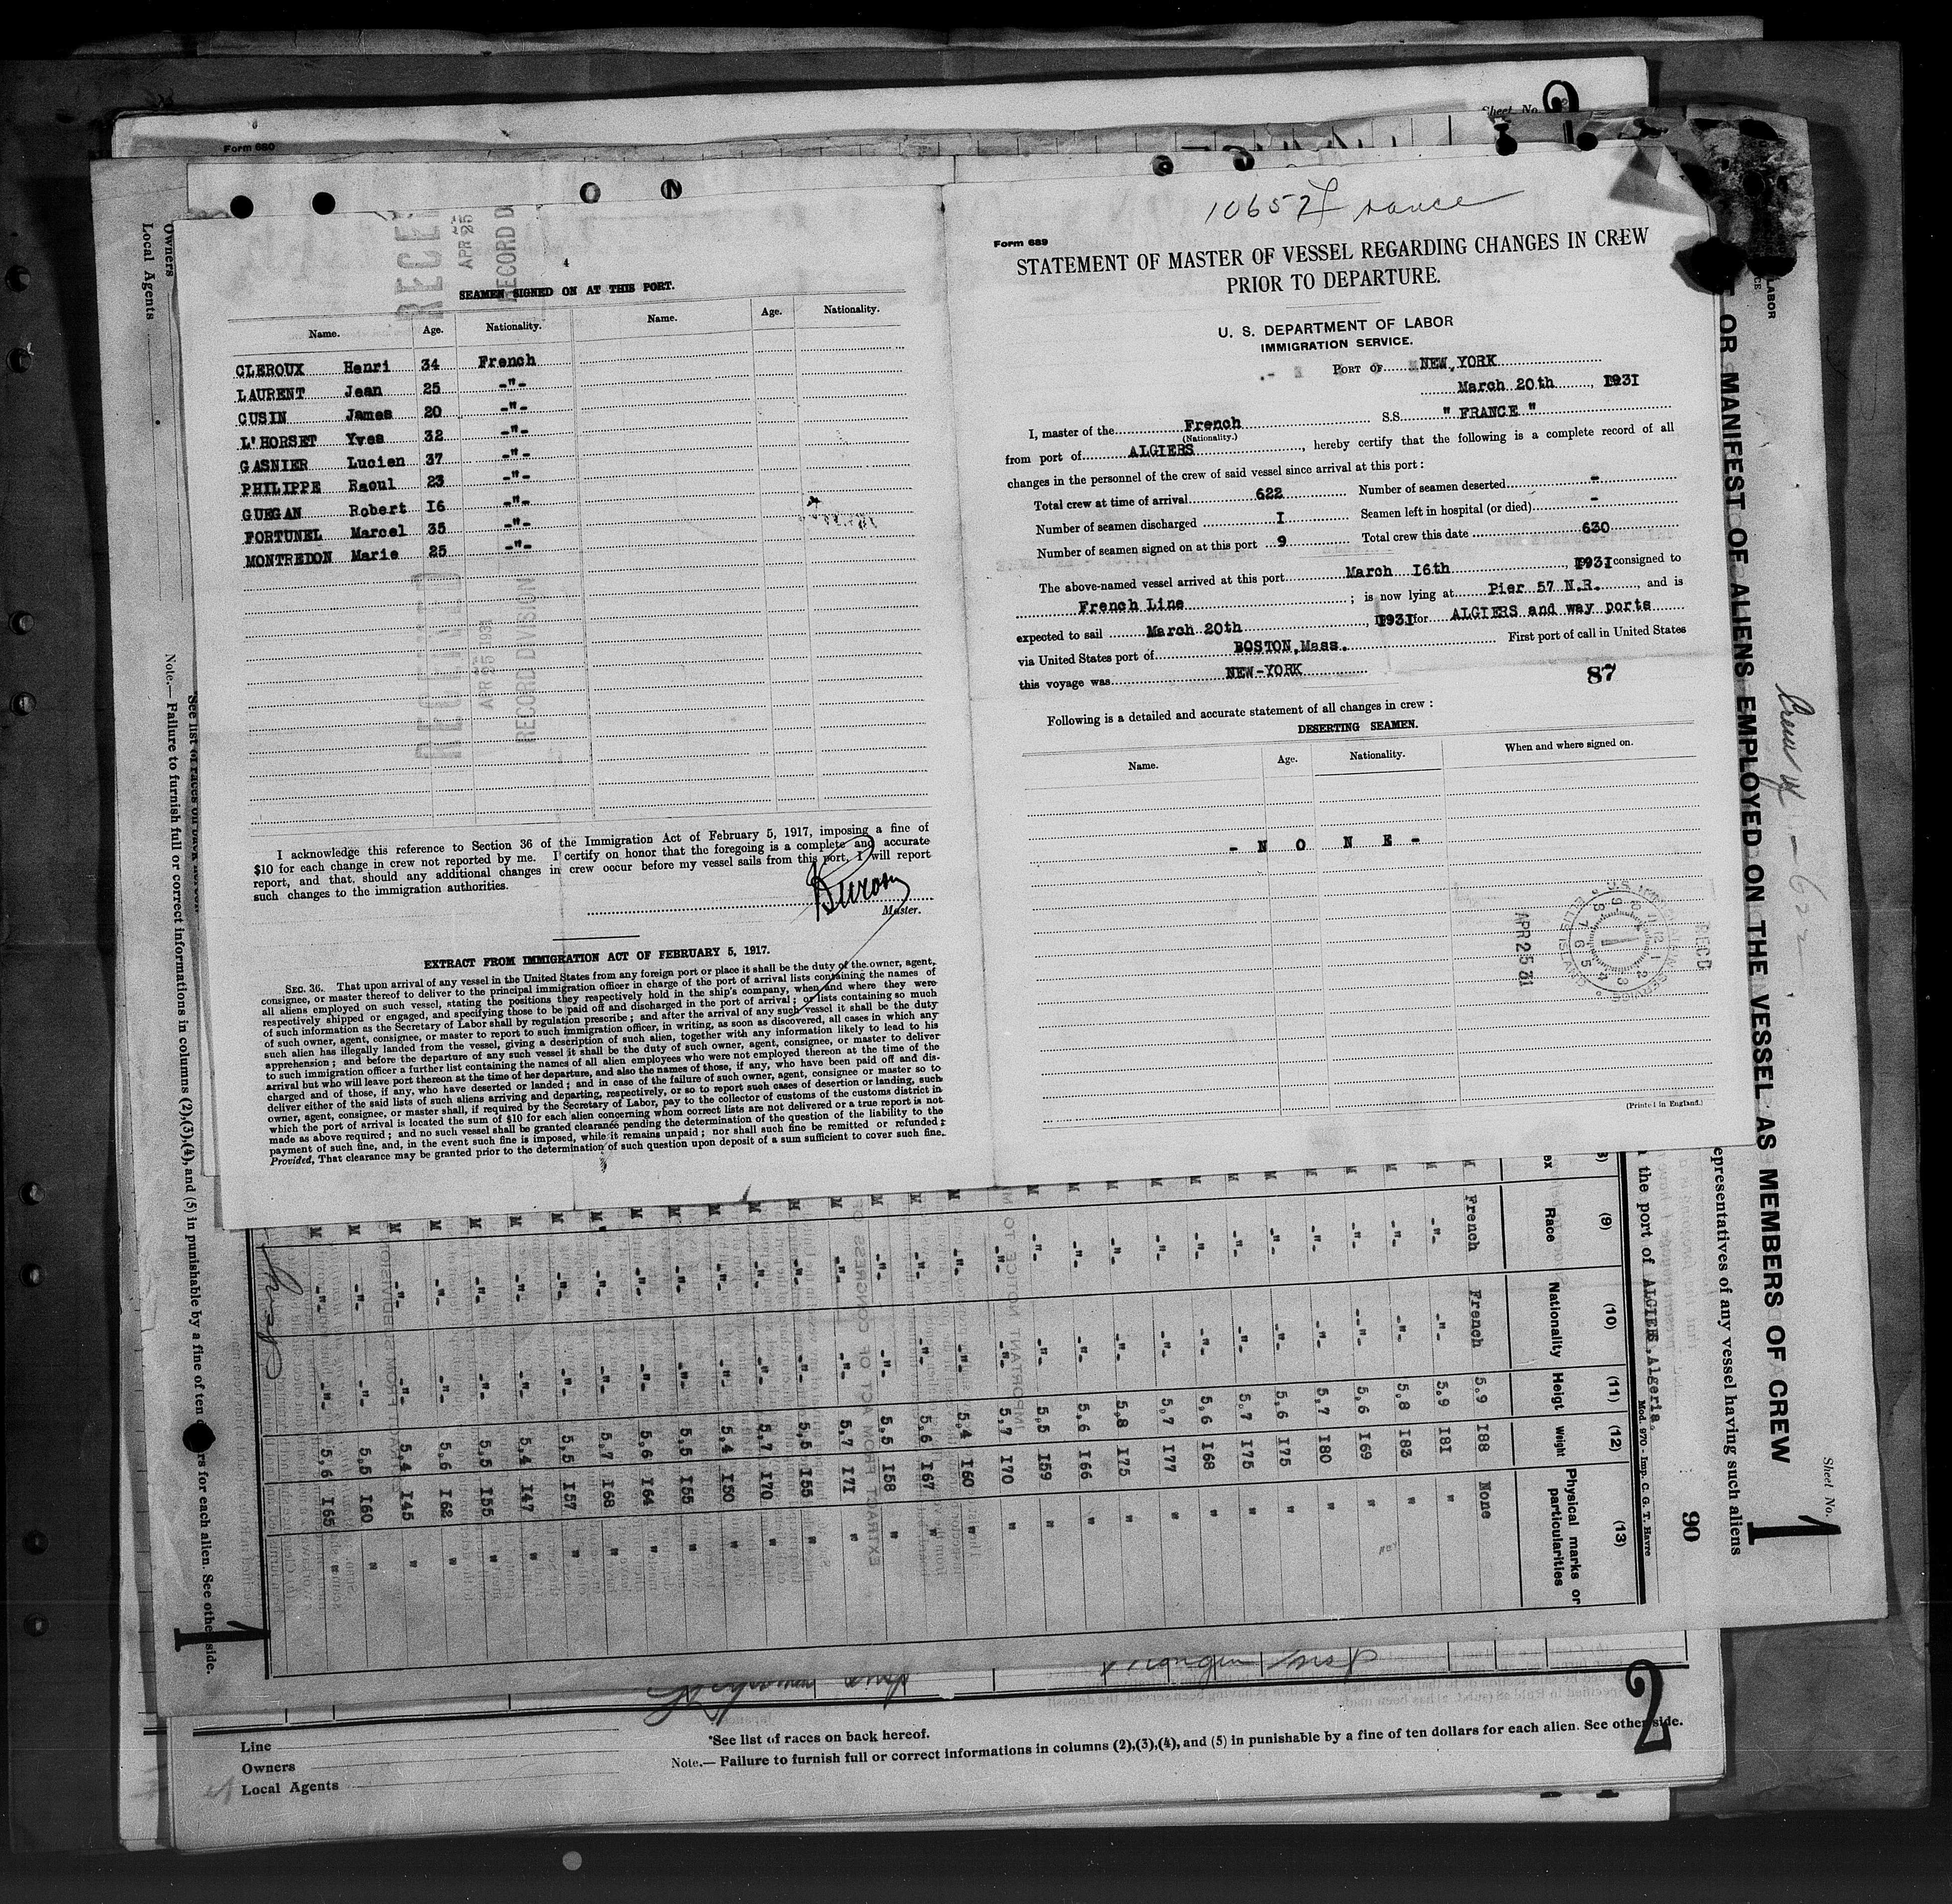 Form 680
Sheet No. 2
RECEI
APR 25
RECORD D
SEAMEN SIGNED ON AT THIS PORT.
Name. Age. Nationality. Name. Age. Nationality.
CLEROUX Henri 34 French
LAURENT Jean 25 -"-
CUSIN James 20 -"-
L'HORSET Yves 32 -"-
GASNIER Lucien 37 -"-
PHILIPPE Raoul 23 -"-
GUEGAN Robert I6 -"-
FORTUNEL Marcel 35 -"-
MONTREDON Marie 25 -"-
RECEIVED
APR 25 1931
RECORD DIVISION
I acknowledge this reference to Section 36 of the Immigration Act of February 5, 1917, imposing a fine of
$10 for each change in crew not reported by me. I certify on honor that the foregoing is a complete and accurate
report, and that should any additional changes in crew occur before my vessel sails from this port, I will report
such changes to the immigration authorities.
Master.
EXTRACT FROM IMMIGRATION ACT OF FEBRUARY 5, 1917.
SEC. 36. That upon arrival of any vessel in the United States from any foreign port or place it shall be the duty of the owner, agent,
consignee, or master thereof to deliver to the principal immigration officer in charge of the port of arrival lists containing the names of
all aliens employed on such vessel, stating the positions they respectively hold in the ship's company, when and where they were
respectively shipped or engaged, and specifying those to be paid off and discharged in the port of arrival; or lists containing so much
of such information as the Secretary of Labor shall by regulation prescribe; and after the arrival of any such vessel it shall be the duty
of such owner, agent, consignee, or master to report to such immigration officer, in writing, as soon as discovered, all cases in which any
such alien has illegally landed from the vessel, giving a description of such alien, together with any information likely to lead to his
apprehension; and before the departure of any such vessel it shall be the duty of such owner, agent, consignee, or master to deliver
to such immigration officer a further list containing the names of all alien employees who were not employed thereon at the time of the
arrival but who will leave port thereon at the time of her departure, and also the names of those, if any, who have been paid off and dis-
charged and of those, if any, who have deserted or landed; and in case of the failure of such owner, agent, consignee or master so to
deliver either of the said lists of such aliens arriving and departing, respectively, or so to report such cases of desertion or landing, such
owner, agent, consignee, or master shall, if required by the Secretary of Labor, pay to the collector of customs of the customs district in
which the port of arrival is located the sum of $10 for each alien concerning whom correct lists are not delivered or a true report is not
made as above required; and no such vessel shall be granted clearance pending the determination of the question of the liability to the
payment of such fine, and, in the event such fine is imposed, while it remains unpaid; nor shall such fine be remitted or refunded:
Provided, That clearance may be granted prior to the determination of such question upon deposit of a sum sufficient to cover such fine.
10652 France
Form 689
STATEMENT OF MASTER OF VESSEL REGARDING CHANGES IN CREW
PRIOR TO DEPARTURE.
U. S. DEPARTMENT OF LABOR
IMMIGRATION SERVICE.
PORT OF NEW YORK
March 20th, 1931
I, master of the French S.S. " FRANCE "
(Nationality.)
from port of ALGIERS, hereby certify that the following is a complete record of all
changes in the personnel of the crew of said vessel since arrival at this port:
Total crew at time of arrival 622 Number of seamen deserted -
Number of seamen discharged I Seamen left in hospital (or died) -
Number of seamen signed on at this port 9 Total crew this date 630
The above-named vessel arrived at this port March I6th, 1931 consigned to
French Line; is now lying at Pier 57 N.R., and is
expected to sail March 20th, 1931 for ALGIERS and way ports
via United States port of BOSTON, Mass. First port of call in United States
this voyage was NEW-YORK
87
Following is a detailed and accurate statement of all changes in crew:
DESERTING SEAMEN.
Name. Age. Nationality. When and where signed on.
- N O N E -
APR 25 31
REC'D
(Printed in England.)
Owners
Local Agents
*See list of races on back hereof.
Note.— Failure to furnish full or correct informations in columns (2),(3),(4), and (5) in punishable by a fine of ten dollars for each alien. See other side.
LABOR
OR MANIFEST OF ALIENS EMPLOYED ON THE VESSEL AS MEMBERS OF CREW
Crew - 622
Sheet No. 1
epresentatives of any vessel having such aliens
90
the port of ALGIERS, Algeria.
Mod. 970 - Imp. C. G. T. Havre
(9) (10) (11) (12) (13)
ex Race Nationality Heigt Weight Physical marks or particularities
French French 5,9 I88 None
-"- -"- 5,9 I81 "
-"- -"- 5,8 I83 "
-"- -"- 5,6 I69 "
-"- -"- 5,7 I80 "
-"- -"- 5,6 I75 "
-"- -"- 5,7 I75 "
-"- -"- 5,6 I68 "
-"- -"- 5,7 I77 "
-"- -"- 5,8 I75 "
-"- -"- 5,6 I66 "
-"- -"- 5,5 I59 "
-"- -"- 5,7 I70 "
-"- -"- 5,4 I60 "
-"- -"- 5,6 I67 "
-"- -"- 5,5 I58 "
-"- -"- 5,7 I71 "
-"- -"- 5,5 I55 "
-"- -"- 5,7 I70 "
-"- -"- 5,4 I50 "
-"- -"- 5,5 I55 "
-"- -"- 5,6 I64 "
-"- -"- 5,7 I68 "
-"- -"- 5,5 I57 "
-"- -"- 5,4 I47 "
-"- -"- 5,5 I55 "
-"- -"- 5,6 I62 "
-"- -"- 5,4 I45 "
-"- -"- 5,5 I60 "
-"- -"- 5,6 I65 "
1
2
Line
Owners
Local Agents
*See list of races on back hereof.
Note.— Failure to furnish full or correct informations in columns (2),(3),(4), and (5) in punishable by a fine of ten dollars for each alien. See other side.